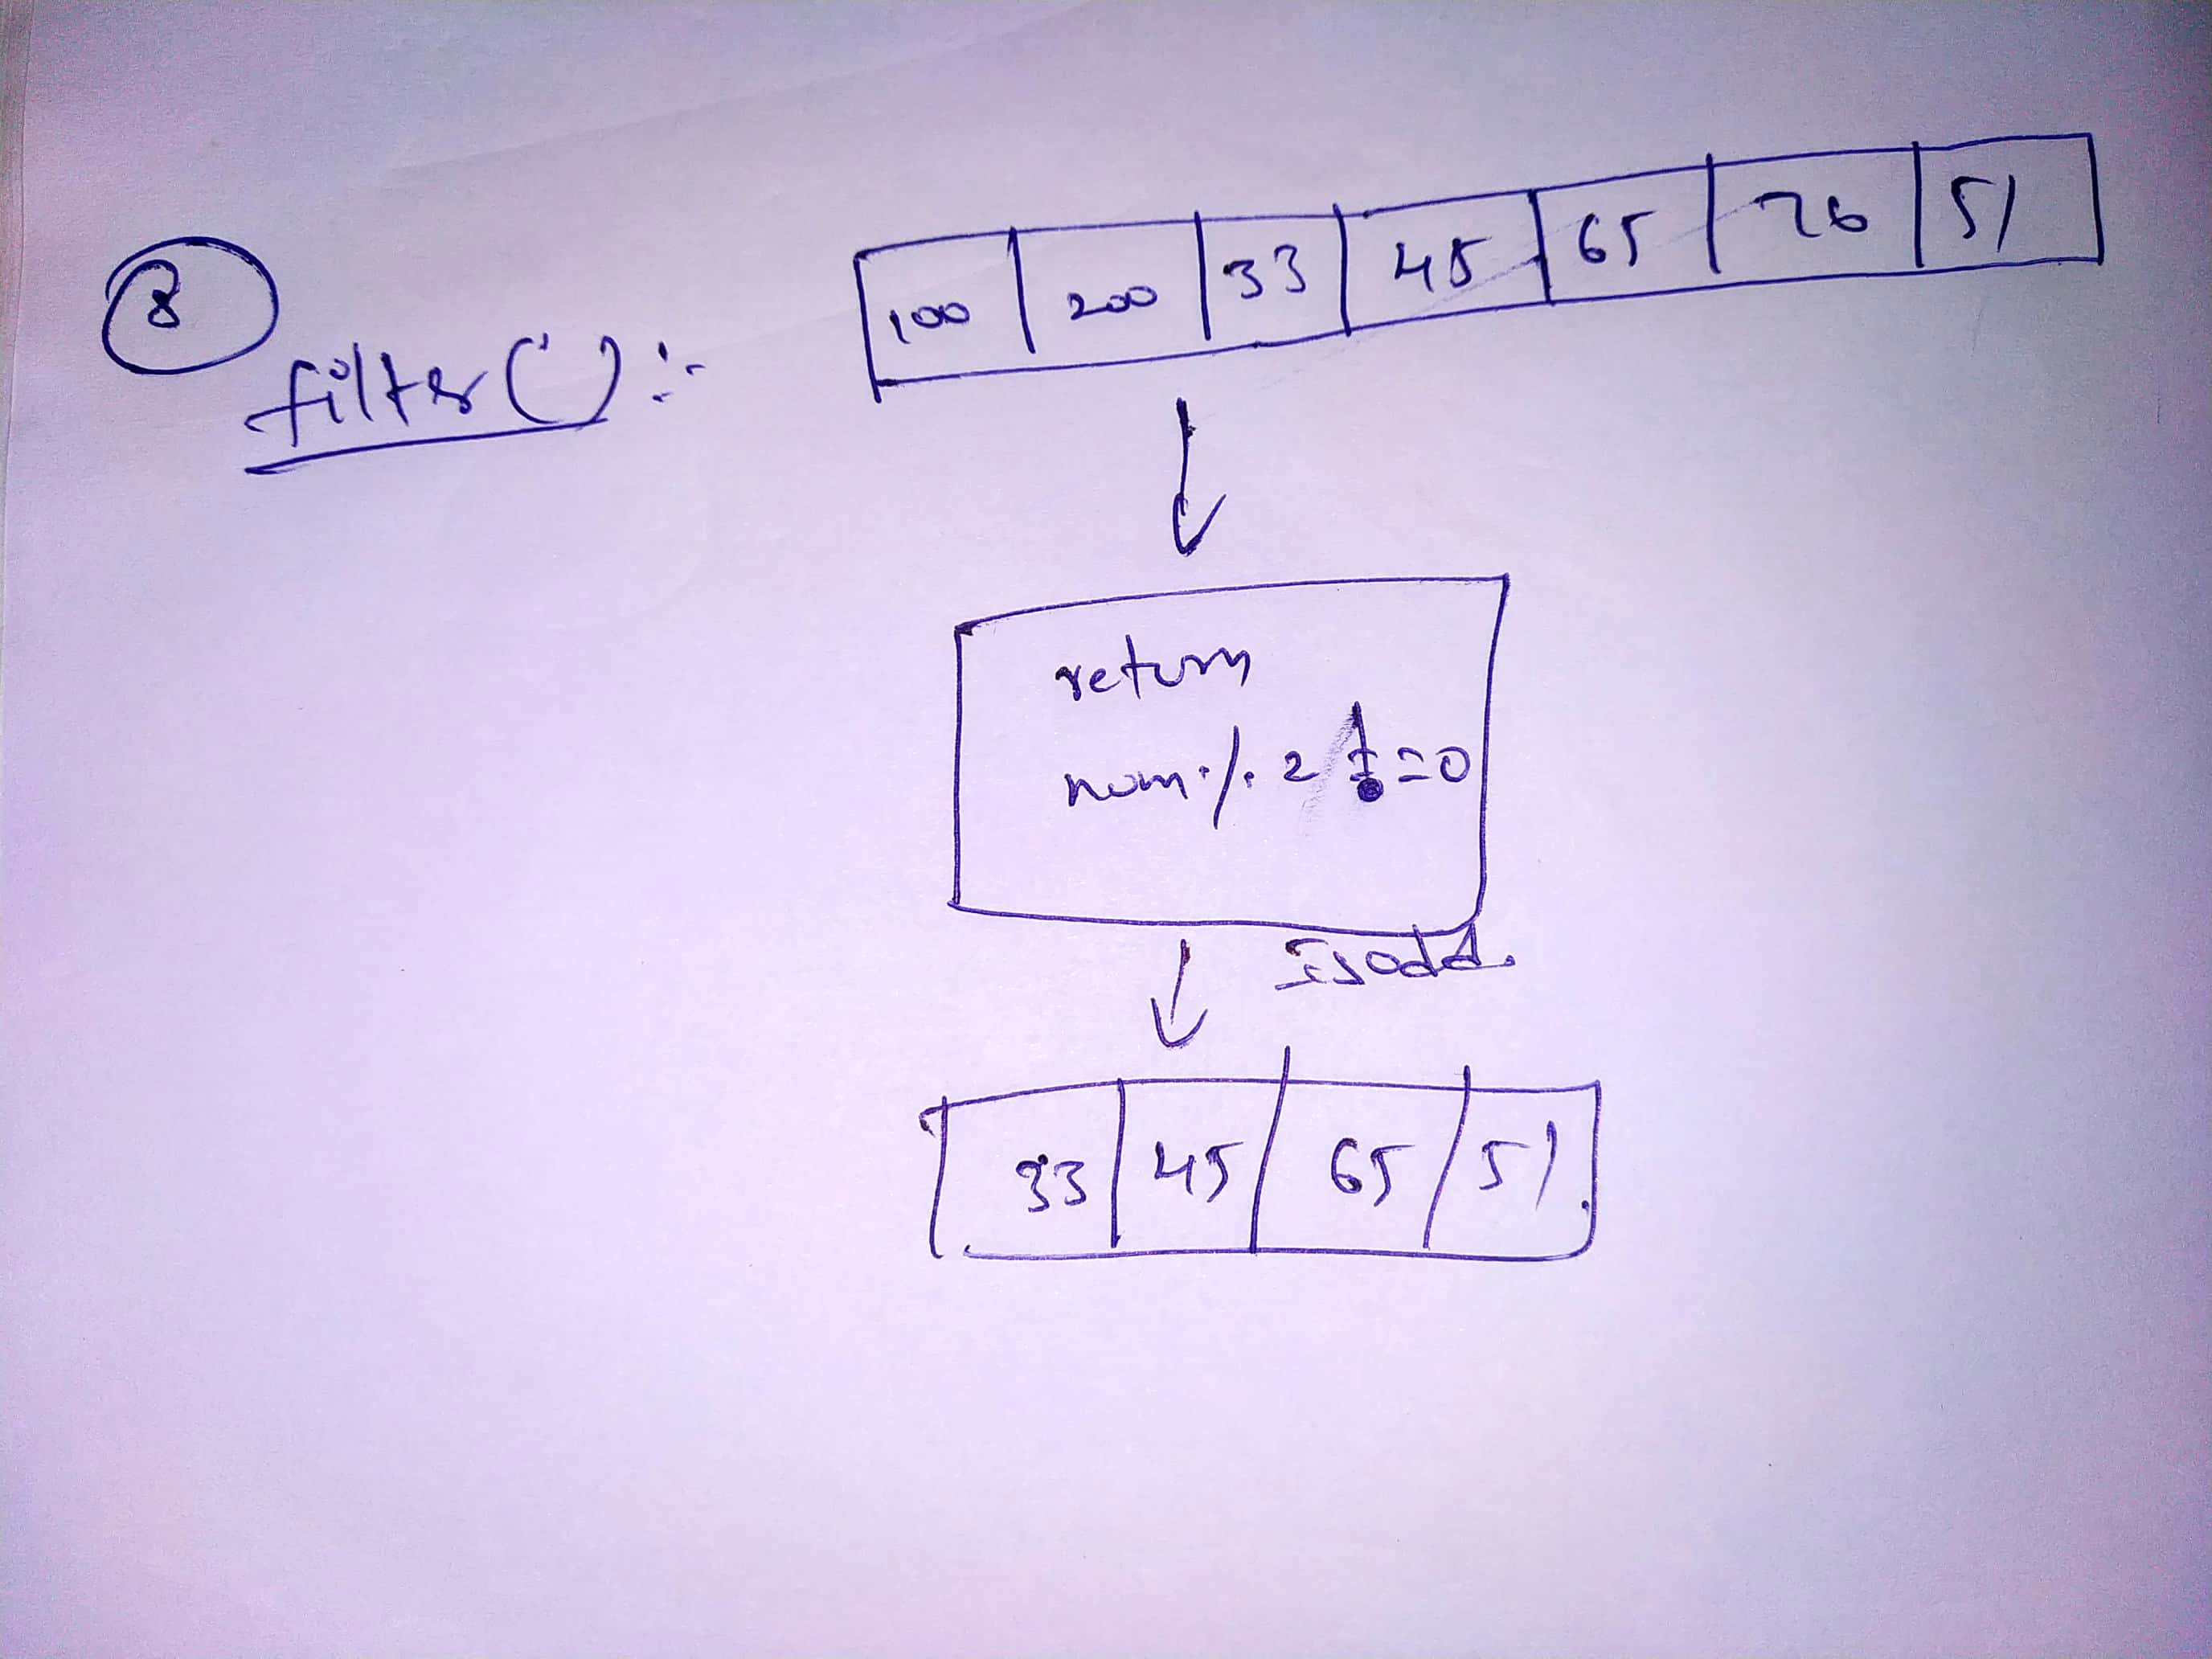 8
filter() :-
100 200 33 45 65 76 51
return
num % 2 != 0
Isodd.
33 45 65 51